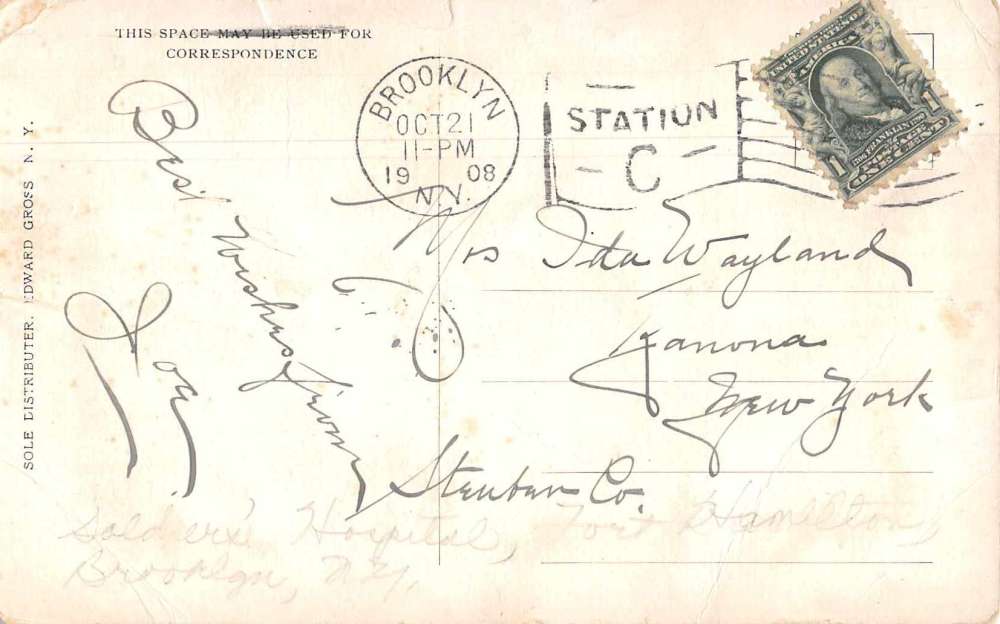 THIS SPACE MAY BE USED FOR
CORRESPONDENCE
BROOKLYN
OCT 21
11-PM
1908
N.Y.
STATION
C
UNITED STATES OF
AMERICA
1706 FRANKLIN 1790
POSTAGE
1 ONE CENT 1
SOLE DISTRIBUTER, EDWARD GROSS N. Y.
Best Wishes from
Mrs Ida Wayland
Kanona
New York
Steuben Co.
Soldiers' Hospital, Fort Hamilton,
Brooklyn, N.Y.